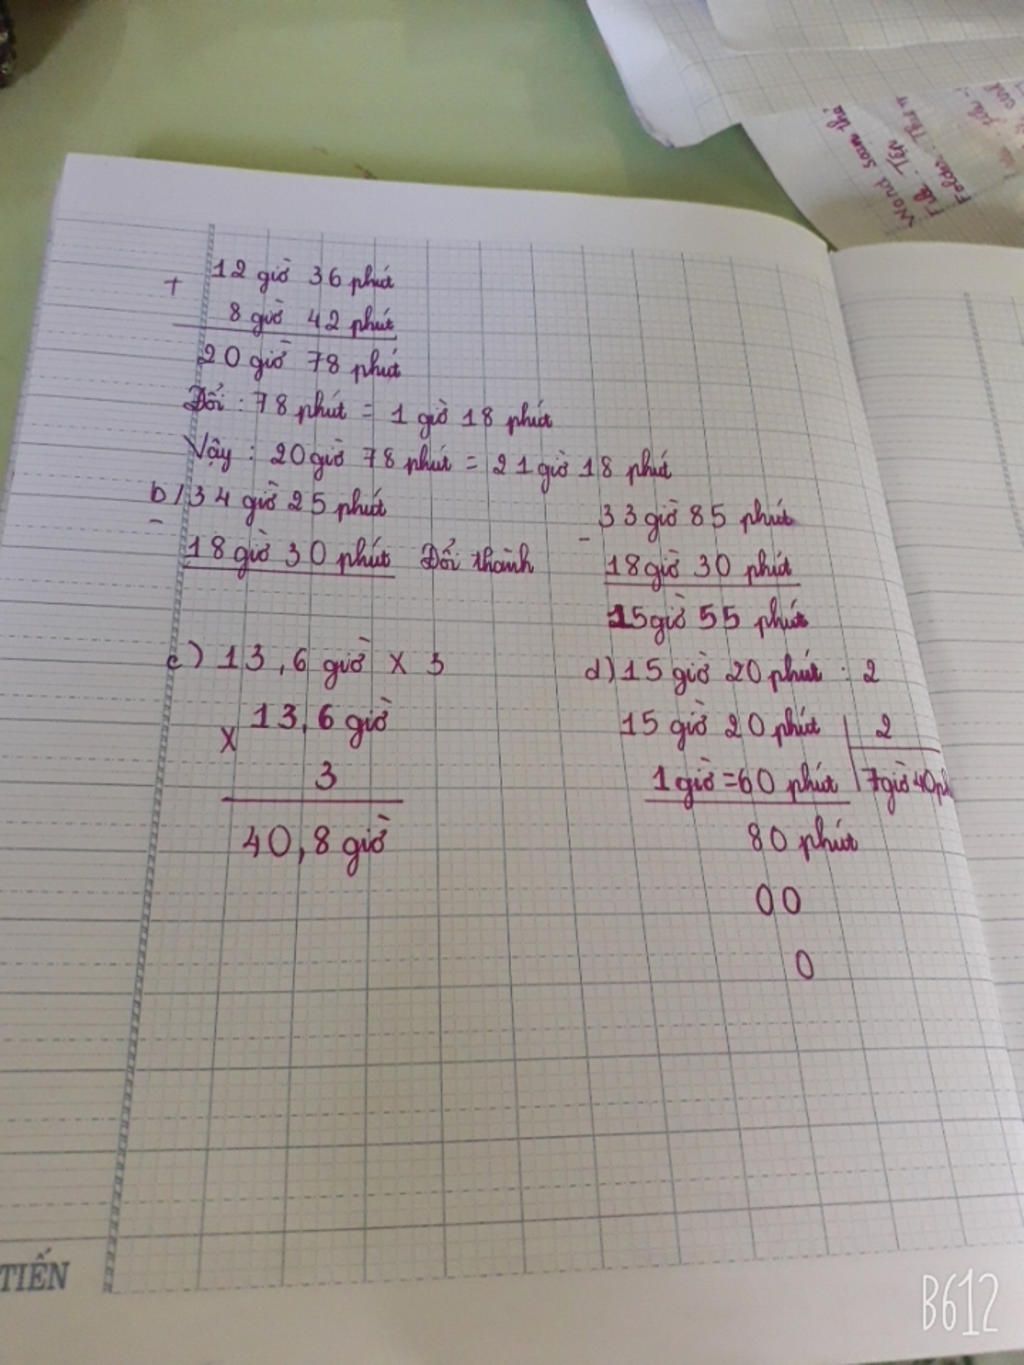 12 giờ 36 phút
+
8 giờ 42 phút
20 giờ 78 phút
Đổi : 78 phút = 1 giờ 18 phút
Vậy : 20 giờ 78 phút = 21 giờ 18 phút
b/ 34 giờ 25 phút
-
18 giờ 30 phút Đổi thành
33 giờ 85 phút
-
18 giờ 30 phút
15 giờ 55 phút
c) 13,6 giờ x 3
13,6 giờ
x
3
40,8 giờ
d) 15 giờ 20 phút : 2
15 giờ 20 phút 2
1 giờ = 60 phút 7 giờ 40 ph
80 phút
00
0
Word
File . Tệp
Folder . Thư m
TIẾN
B612